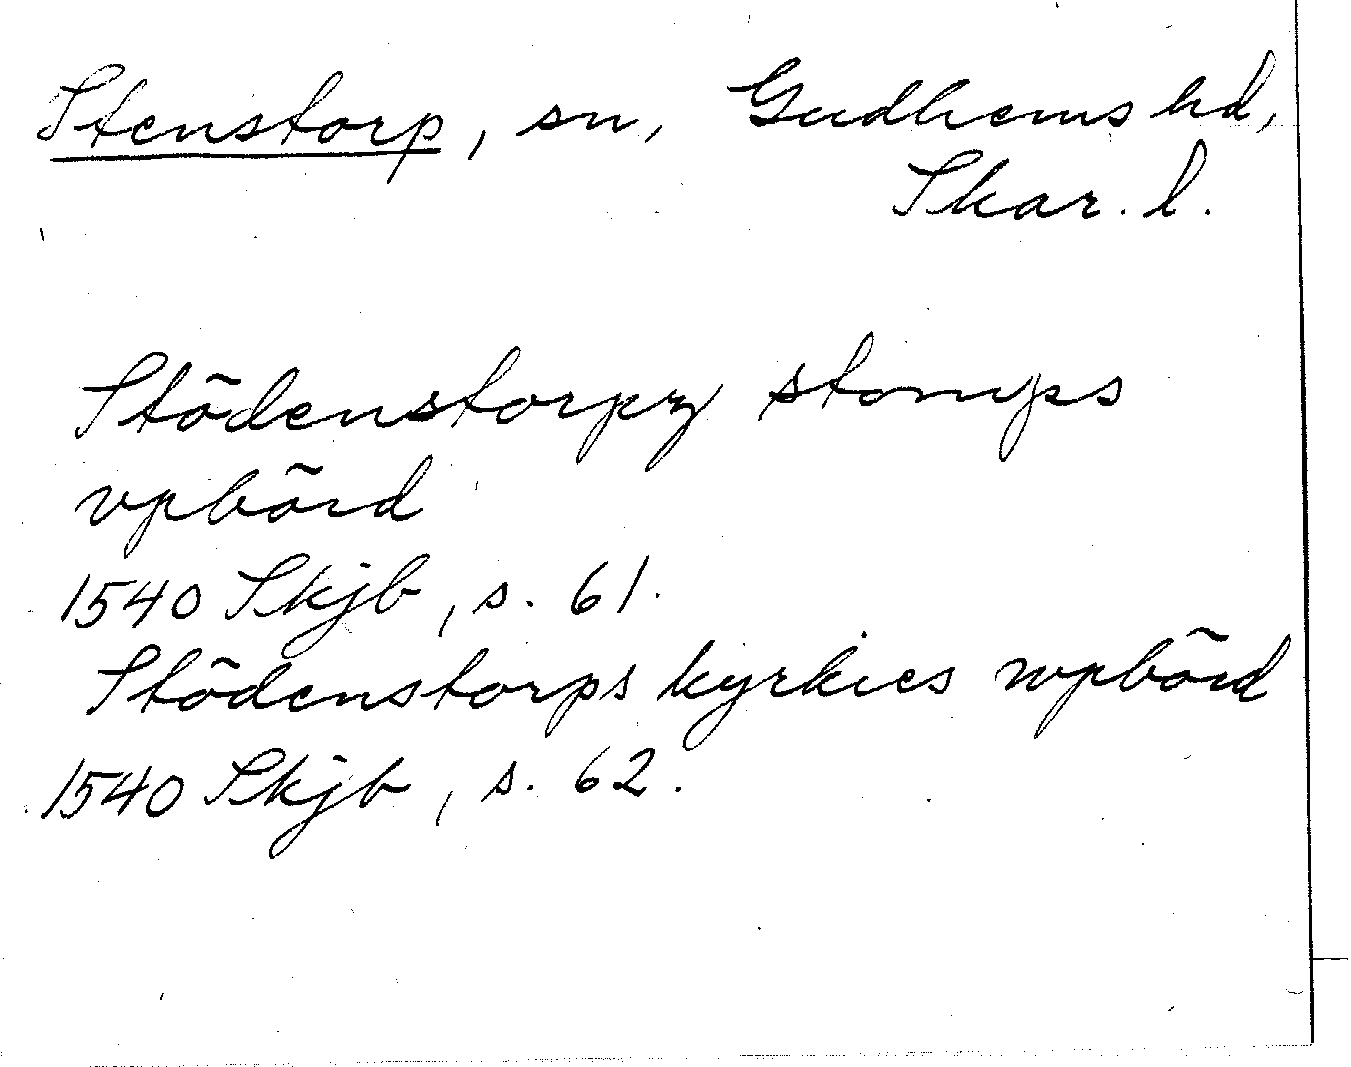 Stenstorp, sn, Gudhems hd,
Skar. l.
Stödenstorpz stomps
vpbörd
1540 Skjb, s. 61.
Stödenstorps kyrkies wpbörd
1540 Skjb, s. 62.